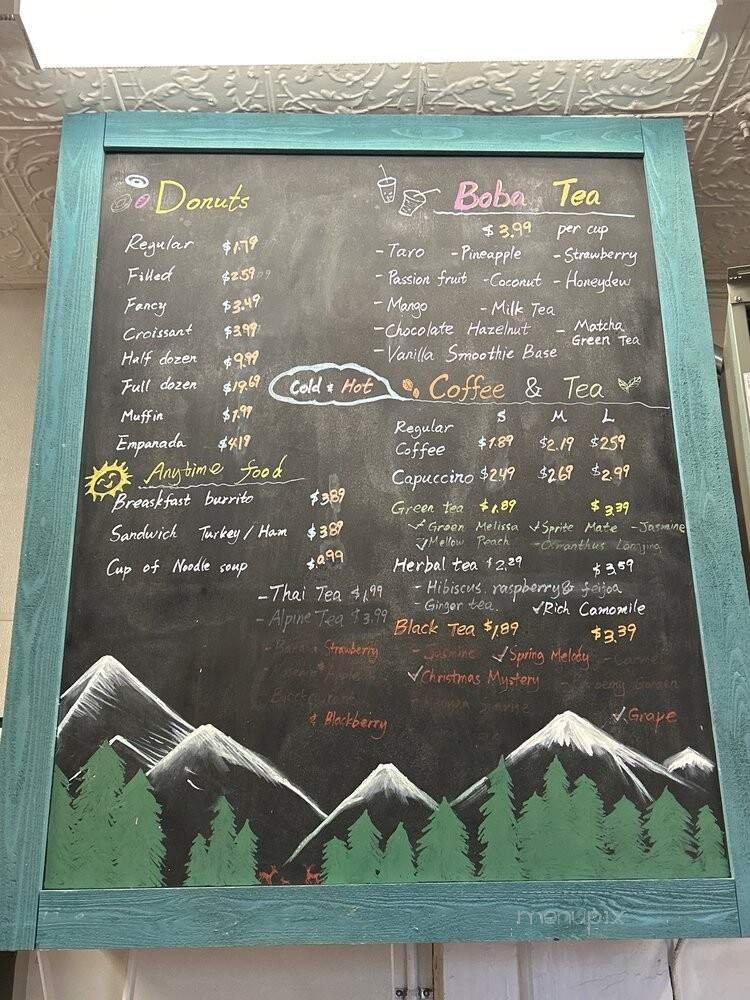 Donuts
Regular $1.79
Filled $2.59
Fancy $3.49
Croissant $3.99
Half dozen $9.99
Full dozen $19.69
Muffin $1.99
Empanada $4.19
Anytime food
Breaskfast burrito $3.89
Sandwich Turkey/Ham $3.89
Cup of Noodle soup $.99
- Thai Tea $1.99
- Alpine Tea $3.99
Strawberry
& Blackberry
Boba Tea
$3.99 per cup
- Taro - Pineapple - Strawberry
- Passion fruit - Coconut - Honeydew
- Mango - Milk Tea
- Chocolate Hazelnut - Matcha Green Tea
- Vanilla Smoothie Base
Cold & Hot
Coffee & Tea
S M L
Regular
Coffee $1.89 $2.19 $2.59
Capuccino $2.49 $2.69 $2.99
Green tea $1.89 $3.39
✓ Green Melissa ✓ Sprite Mate - Jasmine
✓ Mellow Peach
Herbal tea $2.29 $3.59
- Hibiscus. raspberry & feijoa
- Ginger tea. ✓ Rich Camomile
Black Tea $1,89 $3.39
- Jasmine ✓ Spring Melody
✓ Christmas Mystery
✓ Grape
menupix